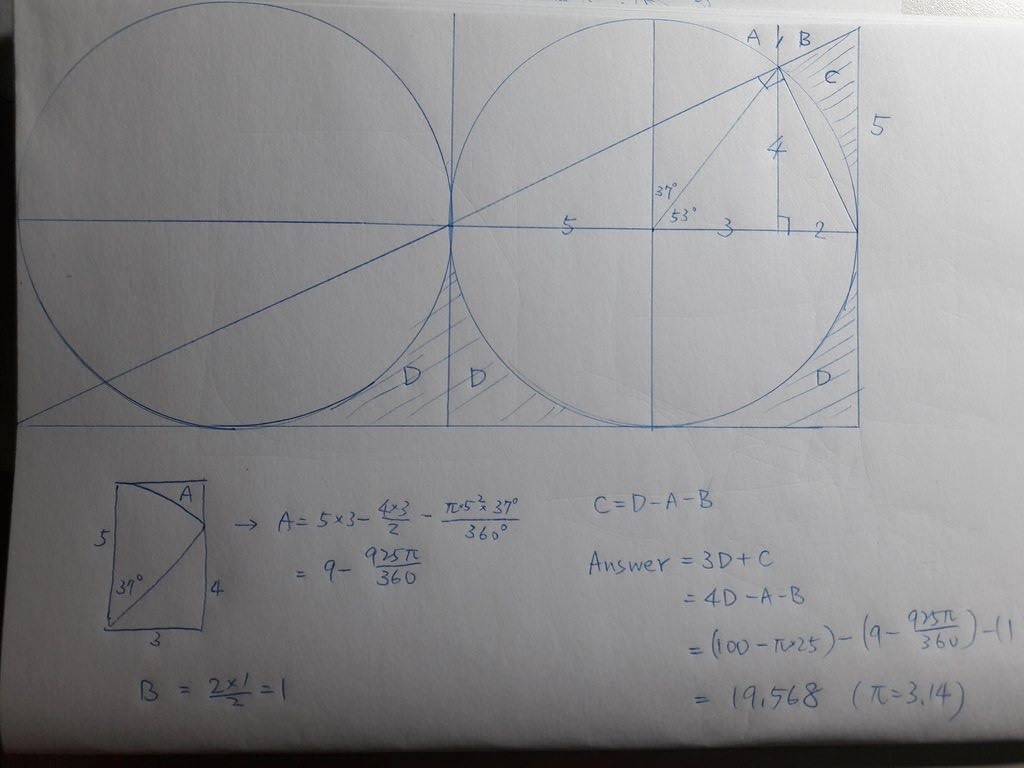 A B
C
5
4
37°
53°
5 3 2
D D D
A
5
37°
4
3
→ A = 5×3 - 4×3/2 - π×5²×37°/360°
= 9 - 925π/360
B = 2×1/2 = 1
C = D - A - B
Answer = 3D + C
= 4D - A - B
= (100 - π×25) - (9 - 925π/360) - (1
= 19.568 (π = 3.14)